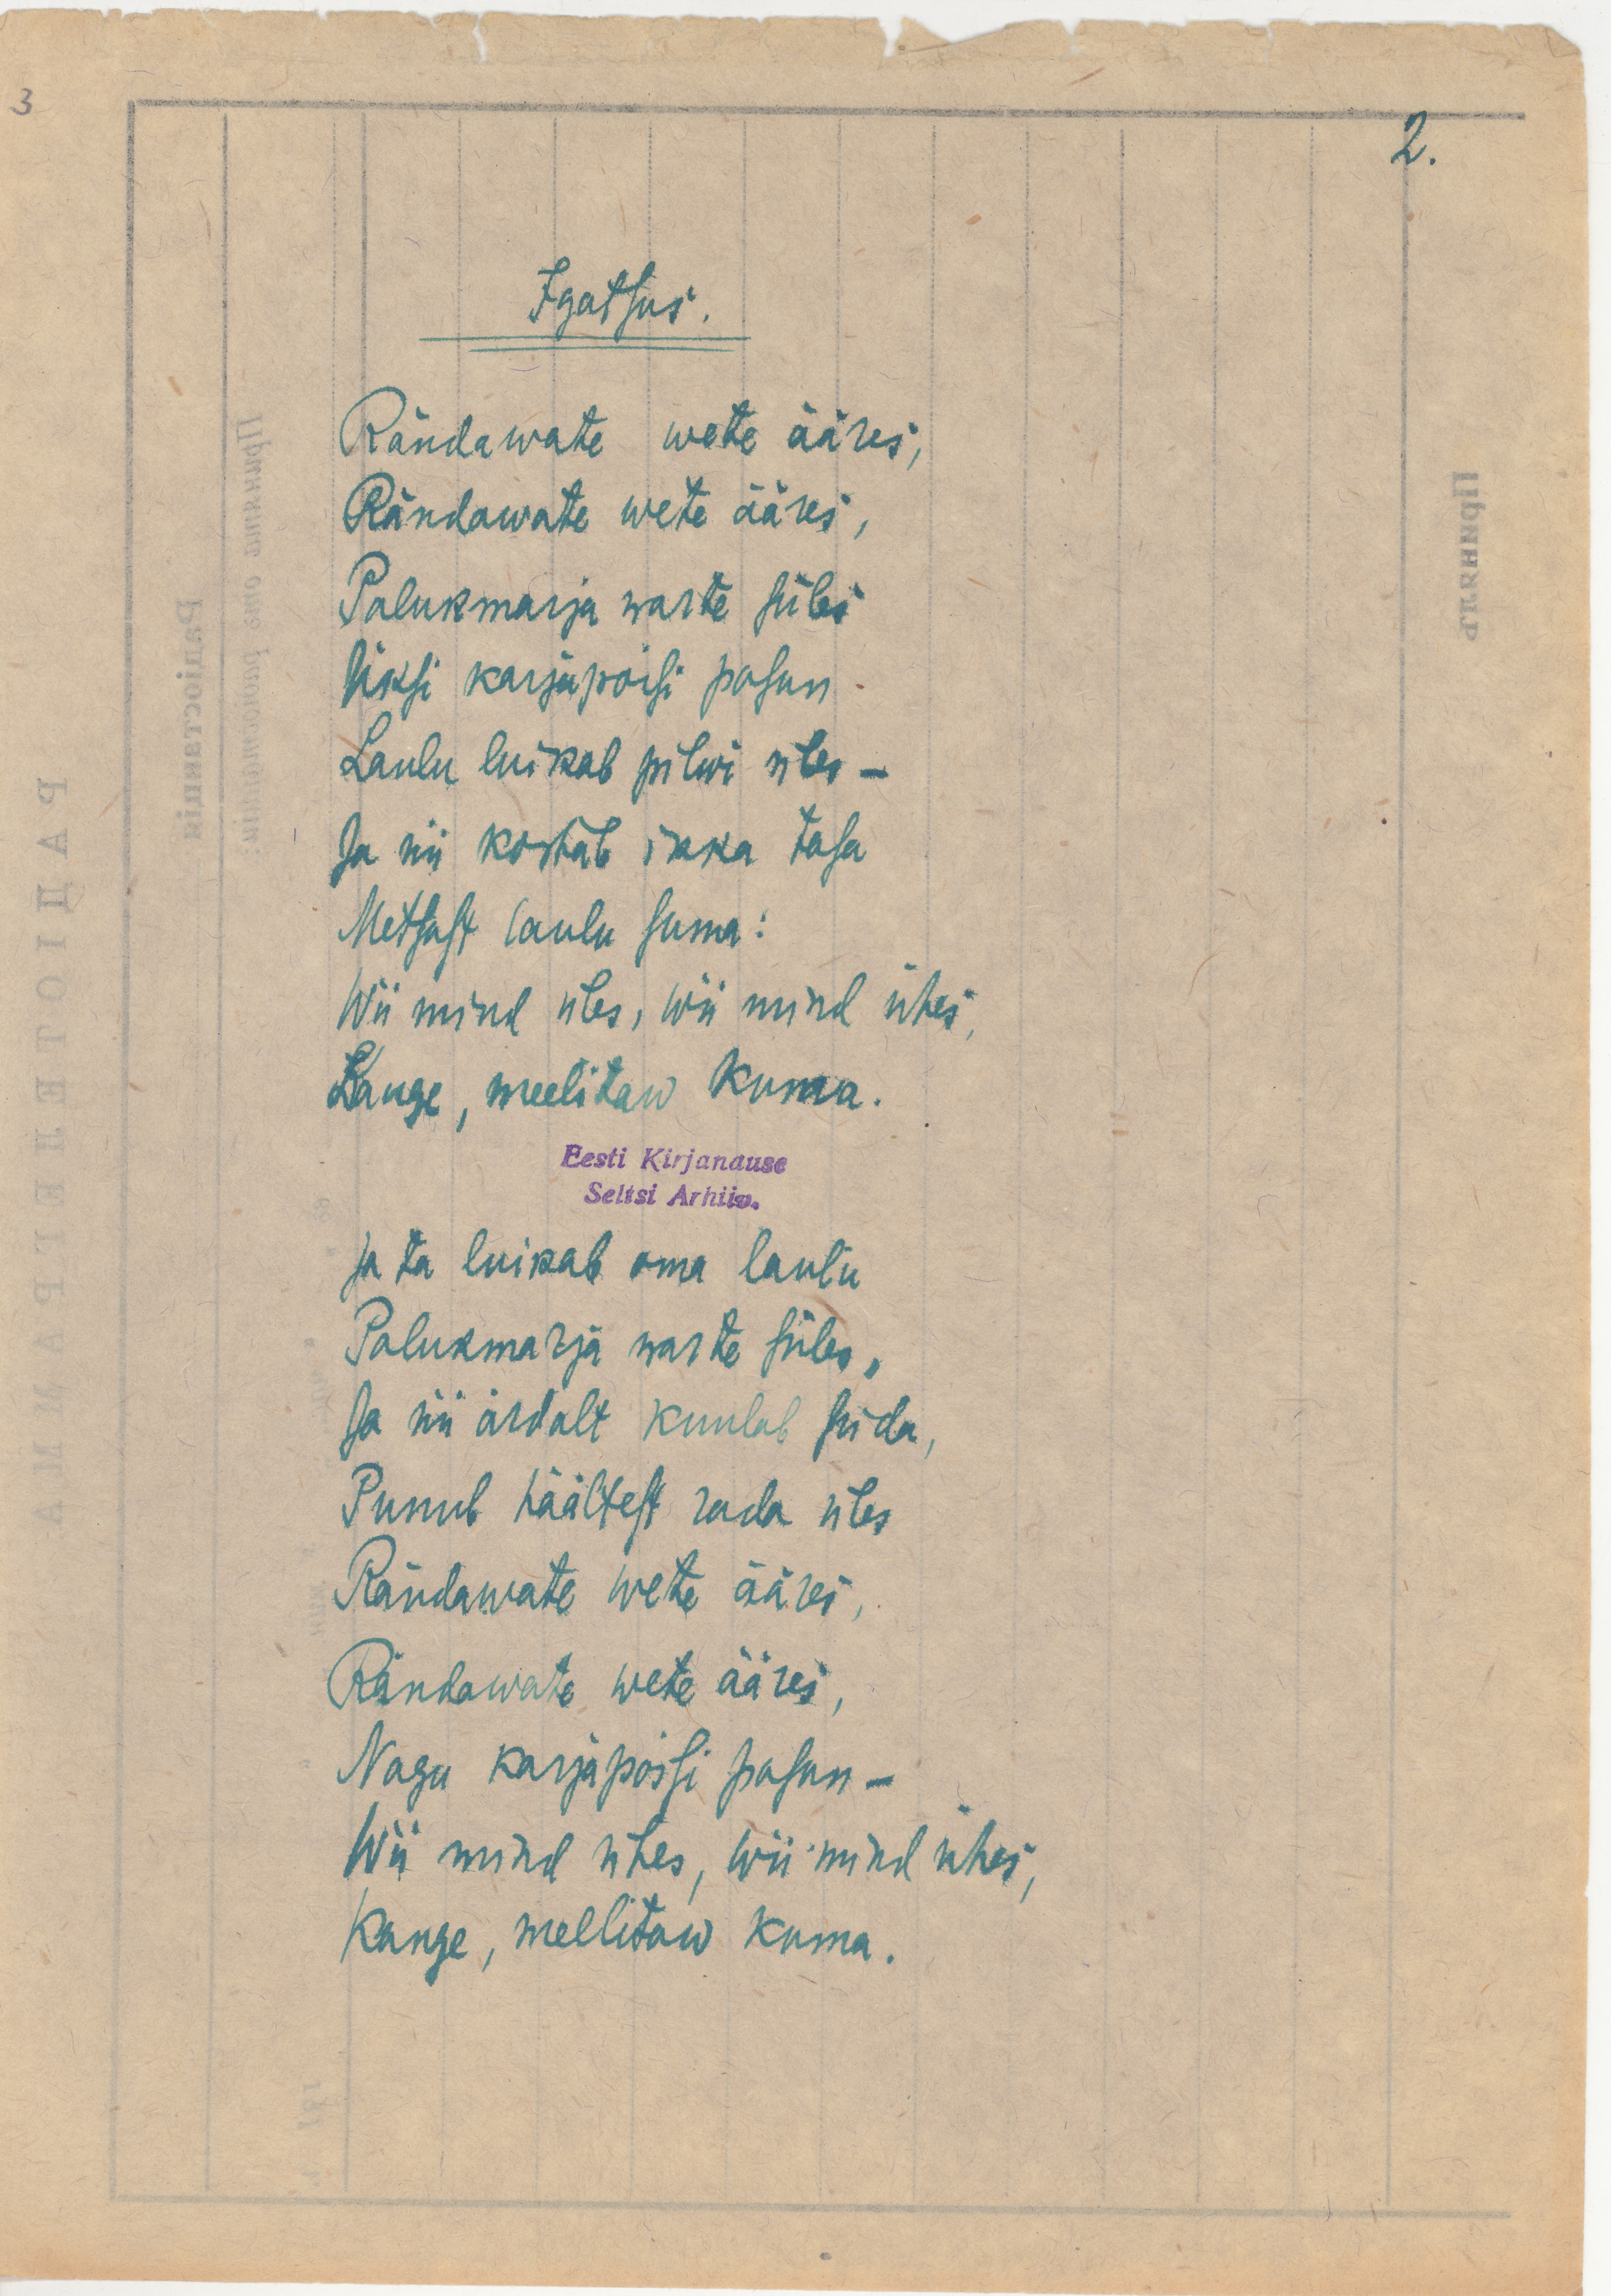 3
2.
Igatsus.
Rändawate wete ääres,
Rändawate wete ääres,
Palukmarja warte süles
Üksi karjapoisi pasun
Laulu luikab pilwi üles –
Ja nii kostab ikka tasa
Metsast laulu suma:
Wii mind üles, wii mind ühes,
Kauge, meelitaw kuma.
Eesti Kirjanduse
Seltsi Arhiiv.
Ja ta luikab oma laulu
Palukmarja warte süles,
Ja nii ärdalt kuulab süda,
Punub häältest rada üles
Rändawate wete ääres,
Rändawate wete ääres,
Nagu karjapoisi pasun –
Wii mind ühes, wii mind ühes,
Kauge, mellitaw kuma.
РАДІОТЕЛЕГРАММА
Радіостанція
Принята отъ радиостанціи:
Принялъ